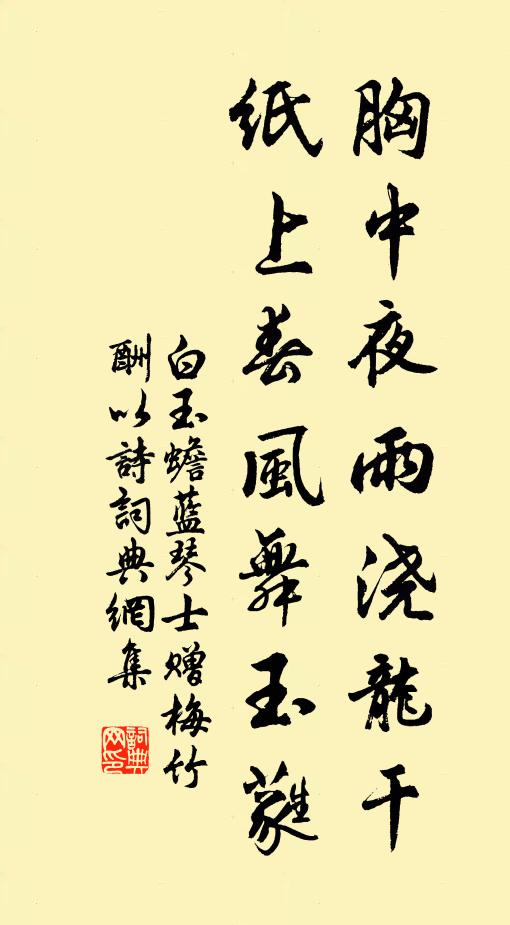 胸中夜雨浇龍干
紙上春風舞玉蕤
白玉蟾藍琴士赠梅竹
酬以詩詞典網集
詞典网印